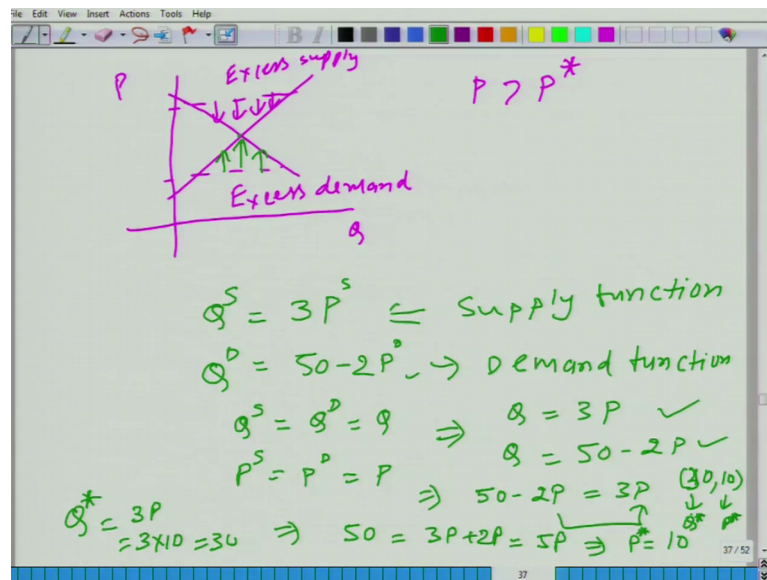 File Edit View Insert Actions Tools Help
B I
P
Excess supply
P > P*
Excess demand
Q
Q^S = 3P^S ← Supply function
Q^D = 50-2P^D → Demand function
Q^S = Q^D = Q ⇒ Q = 3P ✓
P^S = P^D = P Q = 50-2P ✓
⇒ 50-2P = 3P (30,10)
↓ ↓
Q* P*
Q* = 3P
=3×10 =30 ⇒ 50 = 3P+2P = 5P ⇒ P* = 10
37/52
37